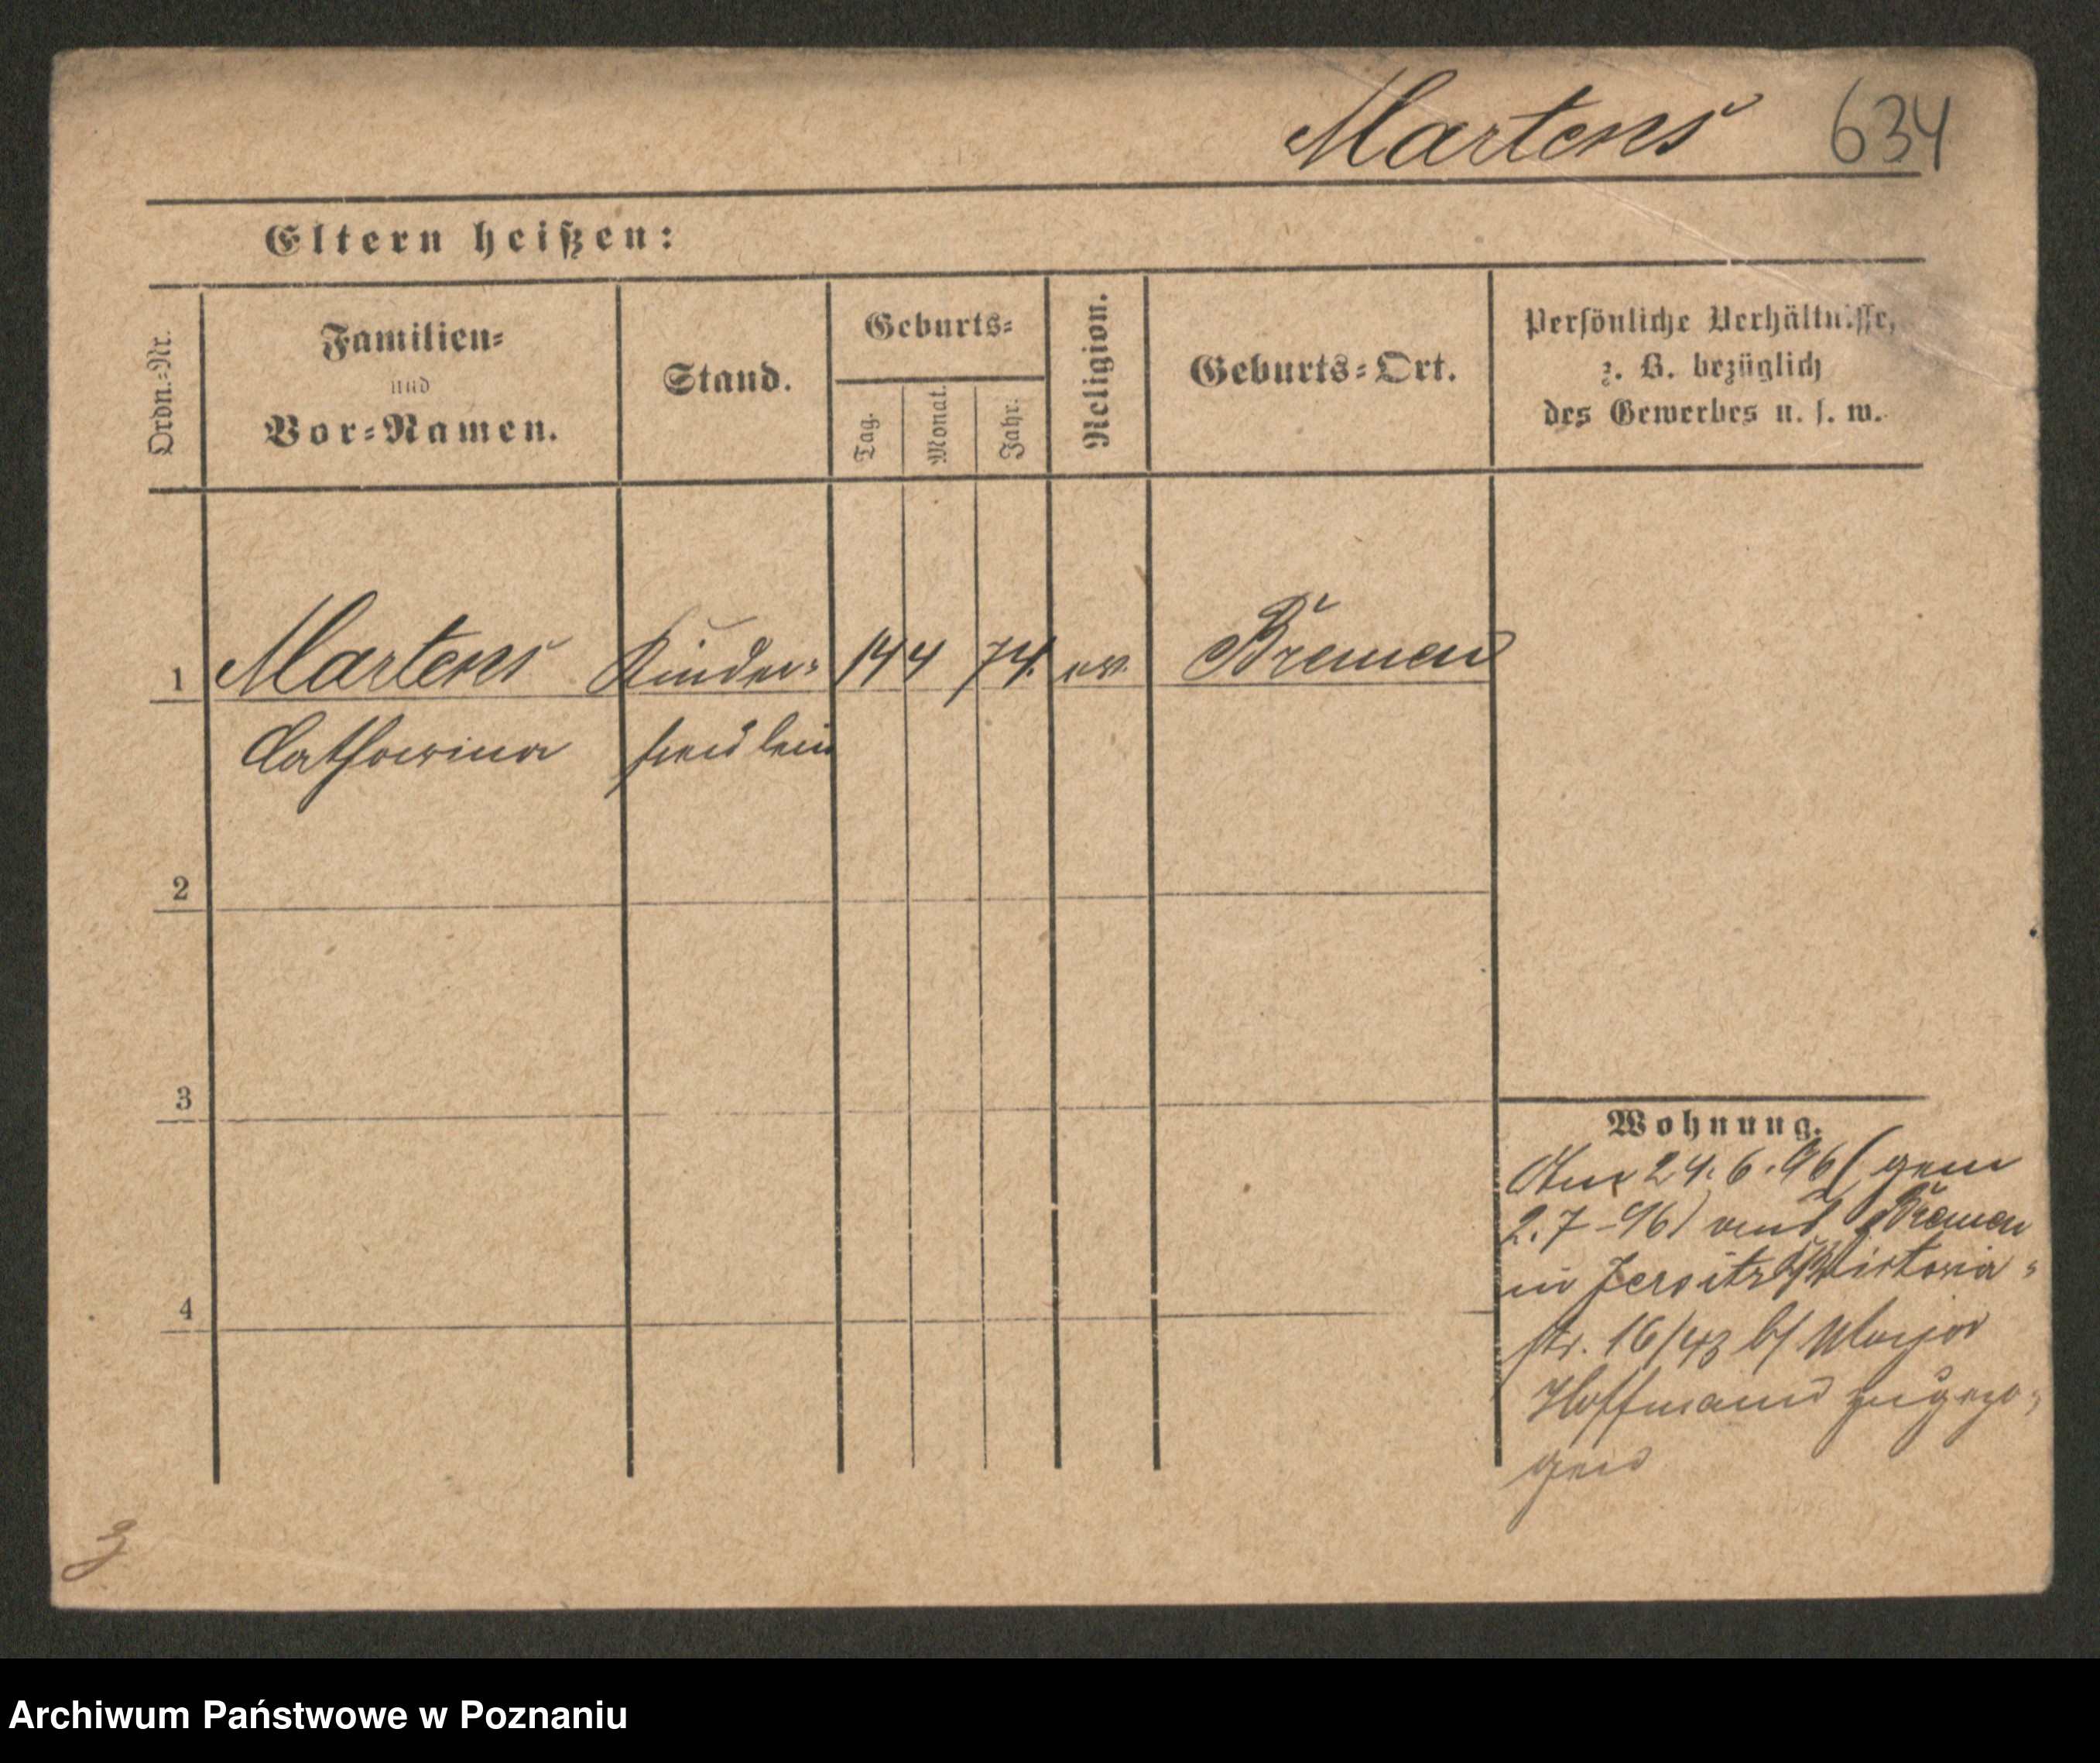 Martens 634
Eltern heißen:
Ordn.=Nr.
Familien=
und
Vor=Namen.
Stand.
Geburts=
Tag.
Monat.
Jahr.
Religion.
Geburts=Ort.
Persönliche Verhältnisse,
z. B. bezüglich
des Gewerbes u. s. w.
1 Martens Kinder= 14 4 74. ev. Bremen
Catharina fräulein
2
3
4
Wohnung.
Am 24.6.96 (gem
2.7-96) aus Bremen
in Jersitz Victoria=
str. 16/43 b/ Major
Hoffmann zugezo=
gen
3
Archiwum Państwowe w Poznaniu